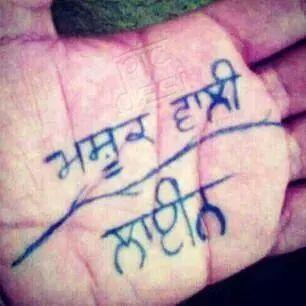 ਮਸ਼ੂਕ ਵਾਲੀ
ਲਾਈਨ